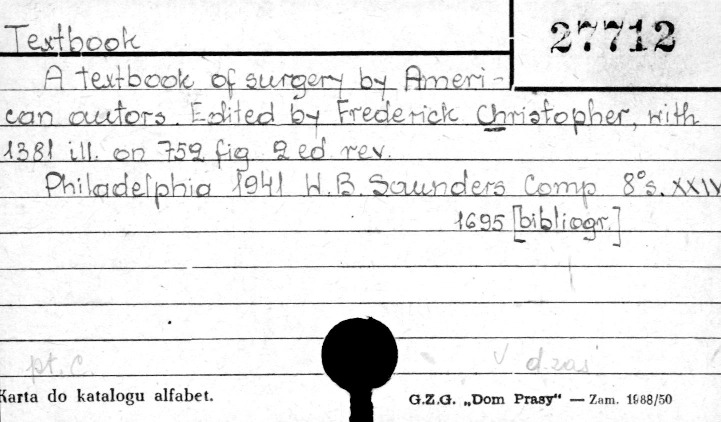 Textbook
27712
A textbook of surgery by Ameri-
can autors. Edited by Frederick Christopher, with
1381 ill. on 752 fig. 2 ed rev.
Philadelphia 1941 W.B. Saunders Comp. 8°s. XXIV
1695 [bibliogr.]
pt. C.
Karta do katalogu alfabet.
G.Z.G. „Dom Prasy" — Zam. 1988/50